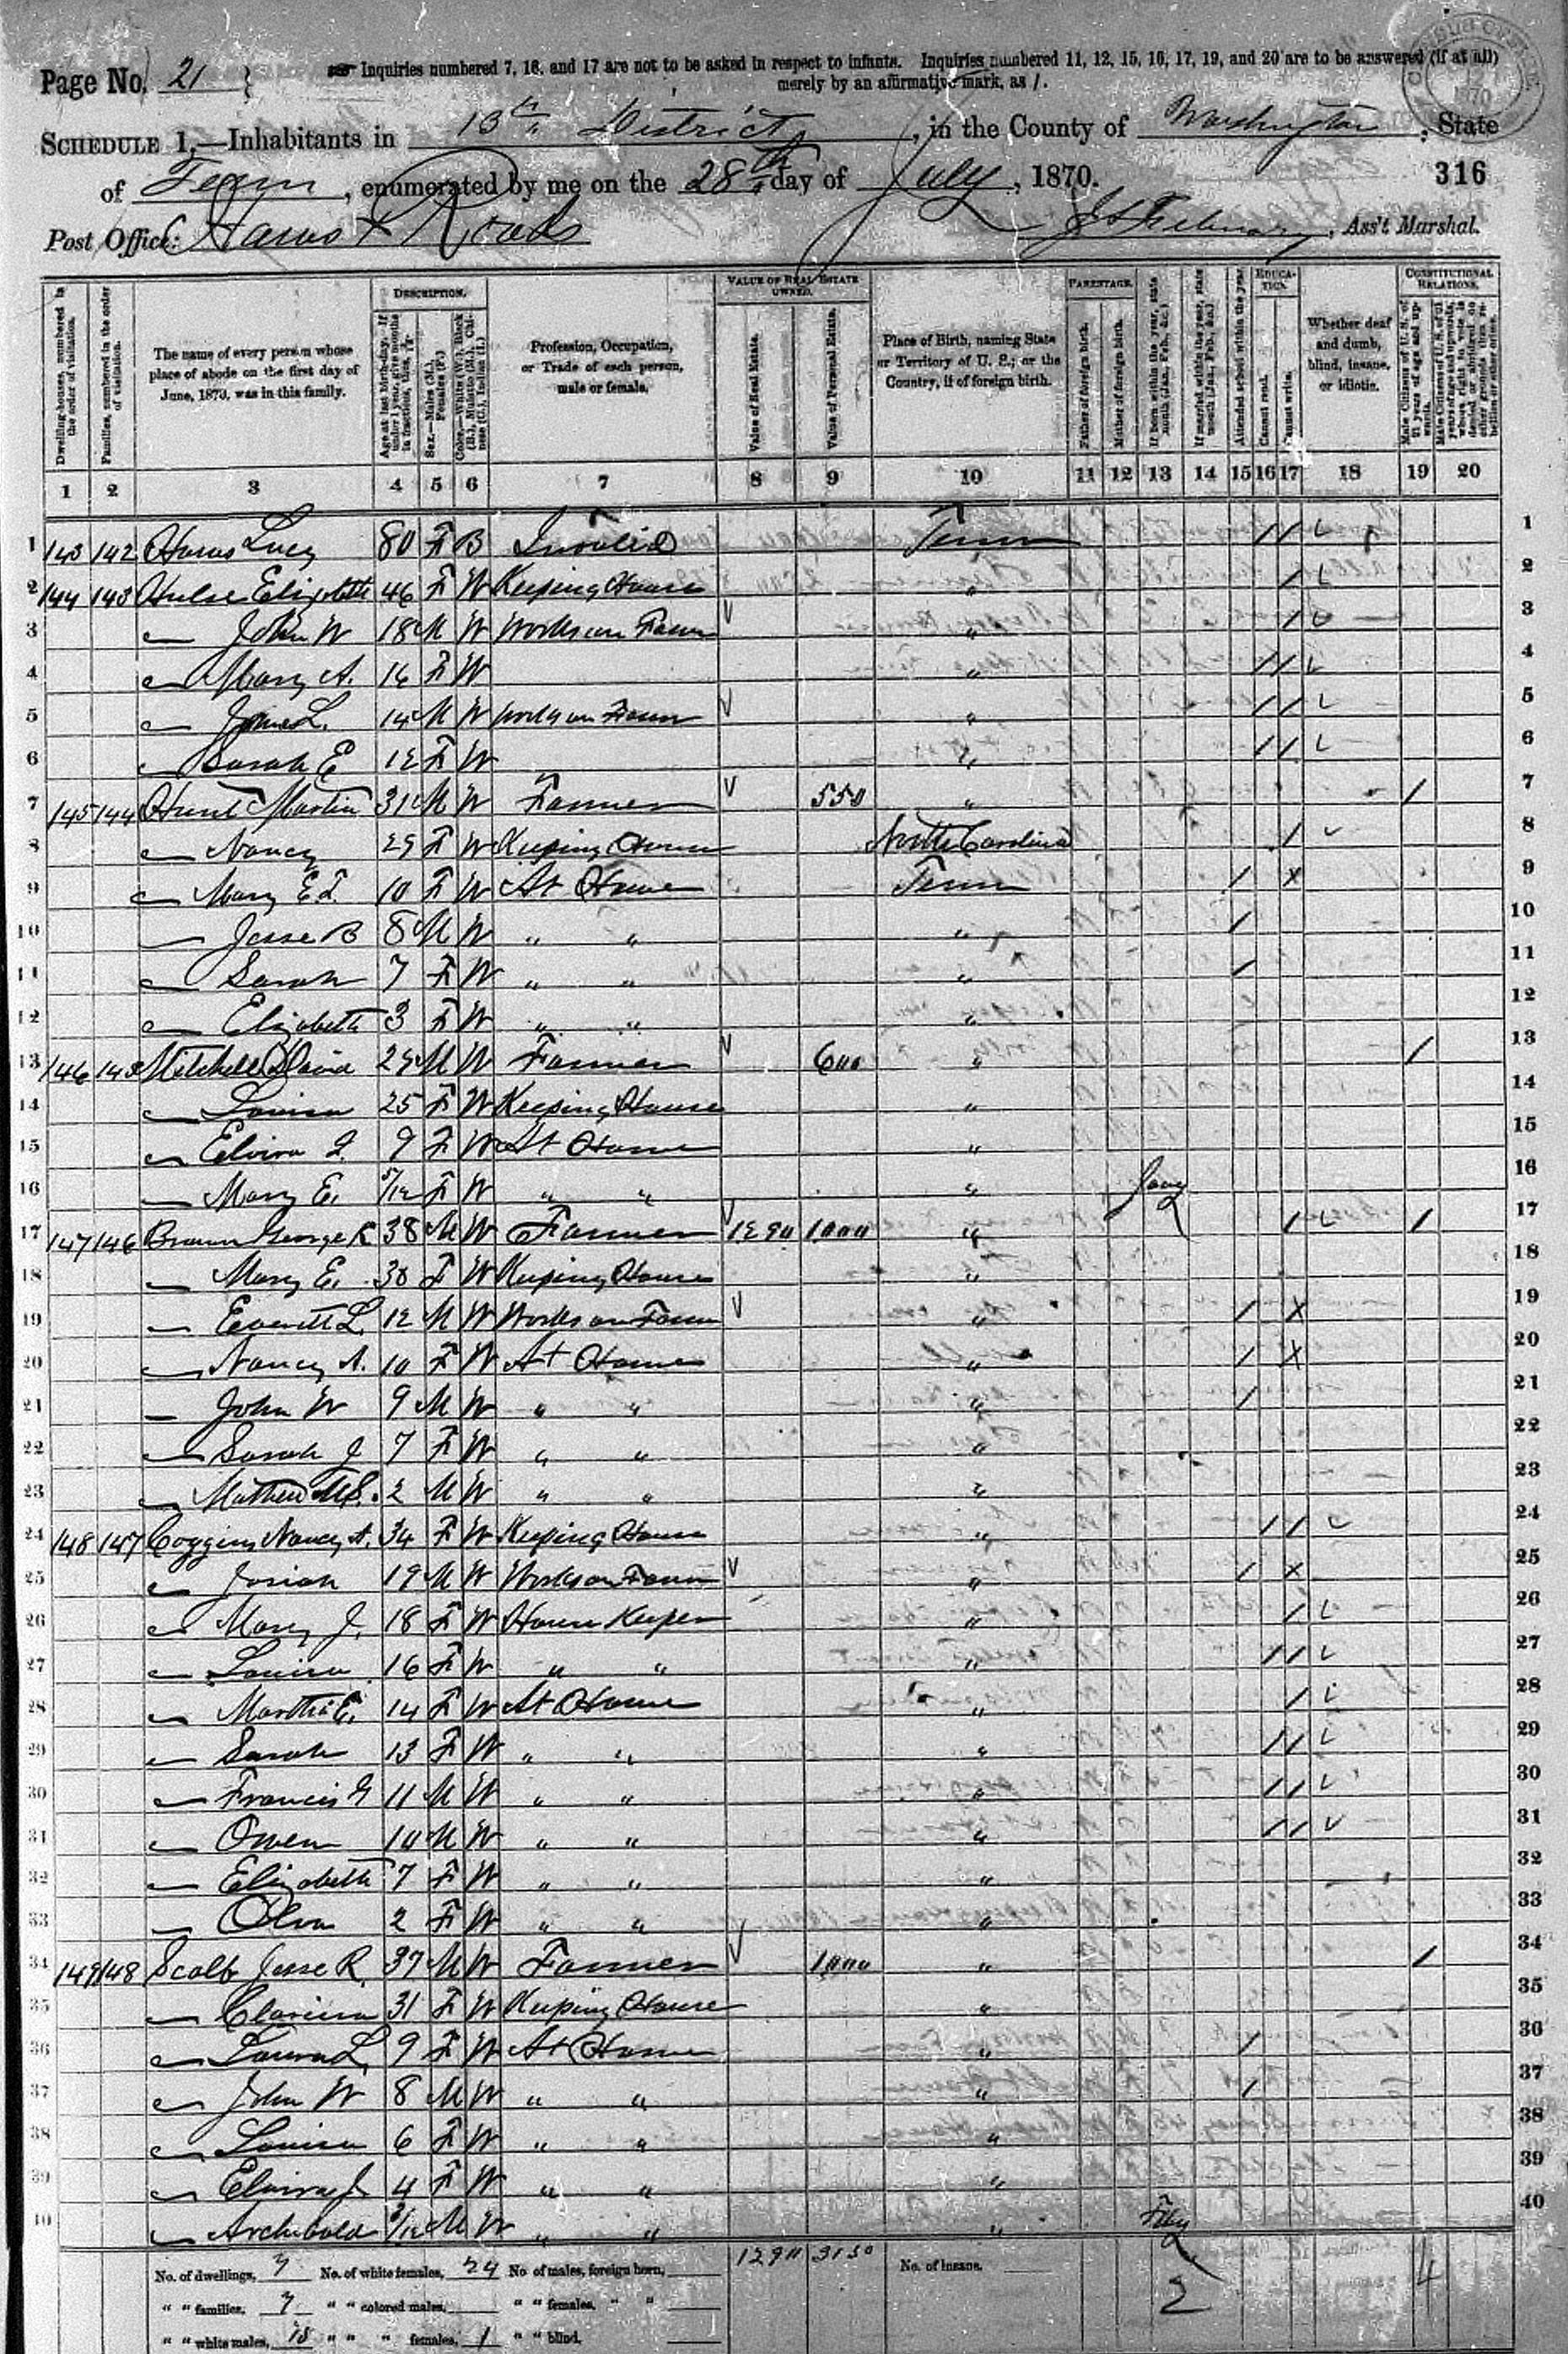 Page No. 21
Inquiries numbered 7, 16, and 17 are not to be asked in respect to infants. Inquiries numbered 11, 12, 15, 16, 17, 19, and 20 are to be answered (if at all)
merely by an affirmative mark, as /.
SCHEDULE 1.—Inhabitants in 13th District, in the County of Washington, State
of Tenn, enumerated by me on the 28th day of July, 1870. 316
Post Office: Haws X Roads J S February, Ass't Marshal.
DESCRIPTION. VALUE OF REAL ESTATE OWNED. PARENTAGE. EDUCATION. CONSTITUTIONAL RELATIONS.
Dwelling-houses, numbered in the order of visitation.
Families, numbered in the order of visitation.
The name of every person whose place of abode on the first day of June, 1870, was in this family.
Age at last birth-day. If under 1 year, give months in fractions, thus, 3/12
Sex.—Males (M.), Females (F.)
Color.—White (W.), Black (B.), Mulatto (M.), Chinese (C.), Indian (I.)
Profession, Occupation, or Trade of each person, male or female.
Value of Real Estate.
Value of Personal Estate.
Place of Birth, naming State or Territory of U. S.; or the Country, if of foreign birth.
Father of foreign birth.
Mother of foreign birth.
If born within the year, state month (Jan., Feb., &c.)
If married within the year, state month (Jan., Feb., &c.)
Attended school within the year.
Cannot read.
Cannot write.
Whether deaf and dumb, blind, insane, or idiotic.
Male Citizens of U. S. of 21 years of age and upwards.
Male Citizens of U. S. of 21 years of age and upwards, whose right to vote is denied or abridged on other grounds than rebellion or other crime.
1 2 3 4 5 6 7 8 9 10 11 12 13 14 15 16 17 18 19 20
1 143 142 Haws Lucy 80 F B Invalid Tenn / / 1
2 144 143 Hulse Elizabeth 46 F W Keeping House " / 2
3 — John W 18 M W Works on Farm " / 3
4 — Mary A. 16 F W " / / 4
5 — James L. 14 M W Works on Farm " / / 5
6 — Sarah E 12 F W " / / 6
7 145 144 Hunt Martin 31 M W Farmer 550 " / 7
8 — Nancy 29 F W Keeping House North Carolina / 8
9 — Mary E. 10 F W At Home Tenn / X 9
10 — Jesse B 8 M W " " " / 10
11 — Sarah 7 F W " " " / 11
12 — Elizabeth 3 F W " " " 12
13 146 145 Mitchell David 29 M W Farmer 600 " / 13
14 — Louisa 25 F W Keeping House " 14
15 — Elvira J. 9 F W At Home " 15
16 — Mary E. 5/12 F W " " " Jany 16
17 147 146 Brown George R 38 M W Farmer 1290 1000 " / / 17
18 — Mary E. 38 F W Keeping House " 18
19 — Everett L. 12 M W Works on Farm " / X 19
20 — Nancy A. 10 F W At Home " / X 20
21 — John W 9 M W " " " / 21
22 — Sarah J 7 F W " " " 22
23 — Mathew M S. 2 M W " " " 23
24 148 147 Coggins Nancy A. 34 F W Keeping House " / / 24
25 — Josiah 19 M W Works on Farm " / X 25
26 — Mary J. 18 F W House Keeper " / 26
27 — Louisa 16 F W " " " / / 27
28 — Martha E. 14 F W At Home " / 28
29 — Sarah 13 F W " " " / / 29
30 — Francis G 11 M W " " " / / 30
31 — Owen 10 M W " " " / / 31
32 — Elizabeth 7 F W " " " 32
33 — 2 F W " " " 33
34 149 148 Scalf Jesse R. 37 M W Farmer 1000 " / 34
35 — Clarissa 31 F W Keeping House " 35
36 — Laura L. 9 F W At Home " / 36
37 — John W 8 M W " " " / 37
38 — Louisa 6 F W " " " 38
39 — Elvira J. 4 F W " " " 39
40 — Archibald 3/12 M W " " " Feby 40
No. of dwellings, 7 No. of white females, 24 No. of males, foreign born, 1290 3150 No. of insane. 2 4
" " families, 7 " " colored males, " " females, " "
" " white males, 15 " " " females, 1 " " blind,